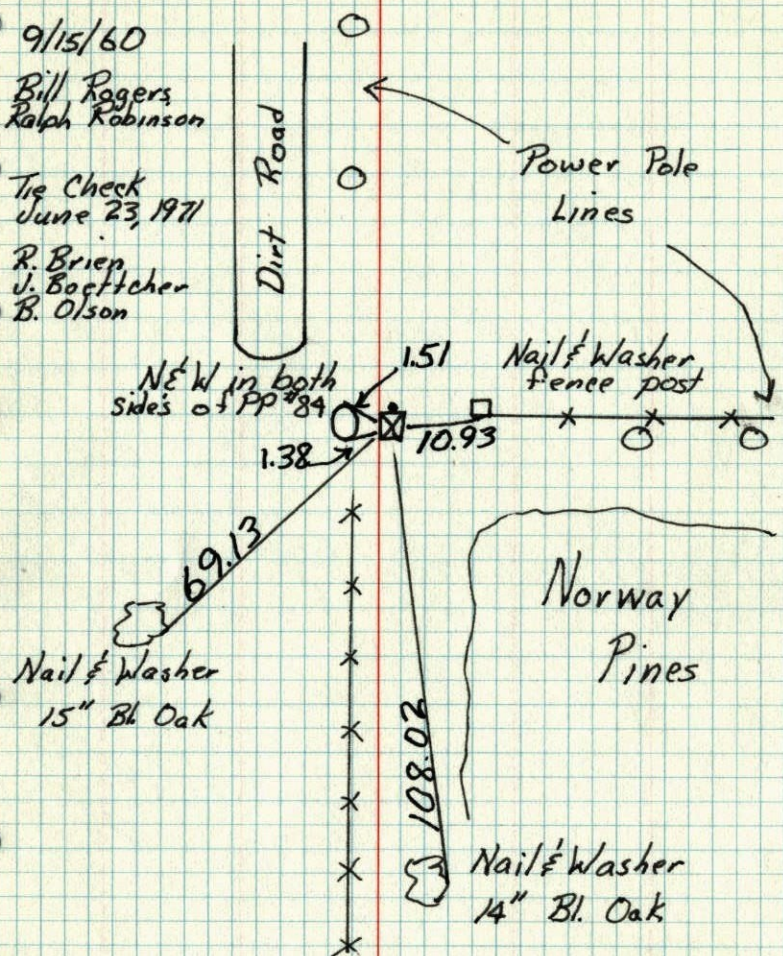 9/15/60
Bill Rogers
Ralph Robinson
Tie Check
June 23, 1971
R. Brien
J. Boettcher
B. Olson
Dirt Road
Power Pole
Lines
N&W in both
sides of PP #84
1.51
Nail & Washer
fence post
10.93
1.38
69.13
Nail & Washer
15" Bl. Oak
Norway
Pines
108.02
Nail & Washer
14" Bl. Oak